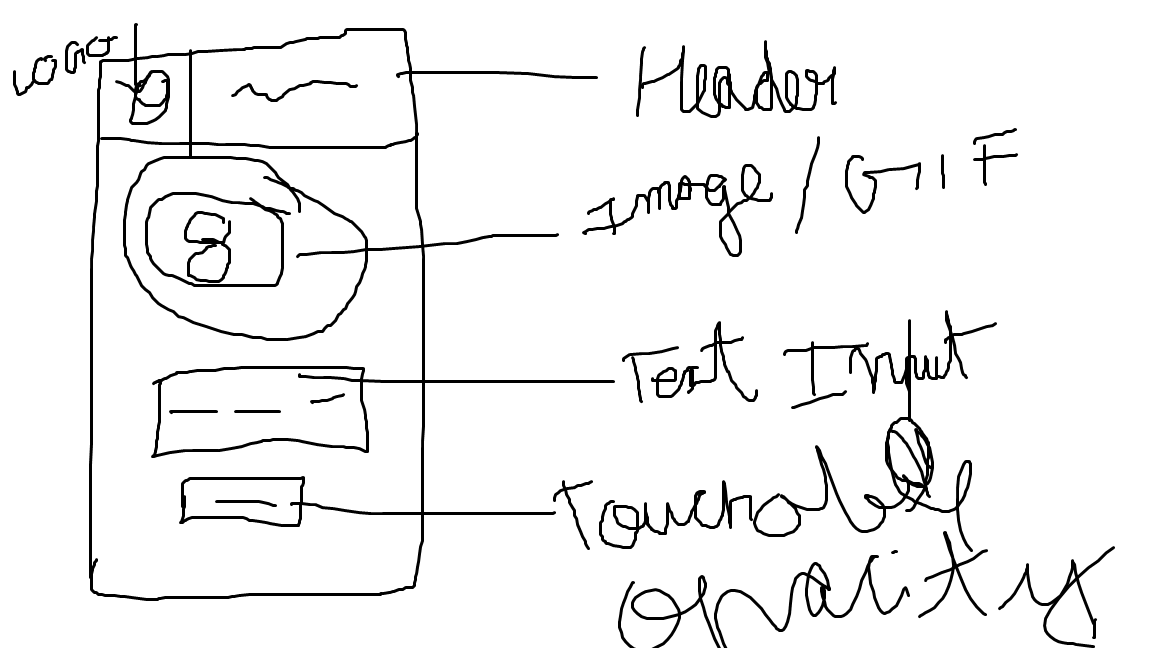 LOGO
Header
Image / GIF
Text Input
Touchable
opacity